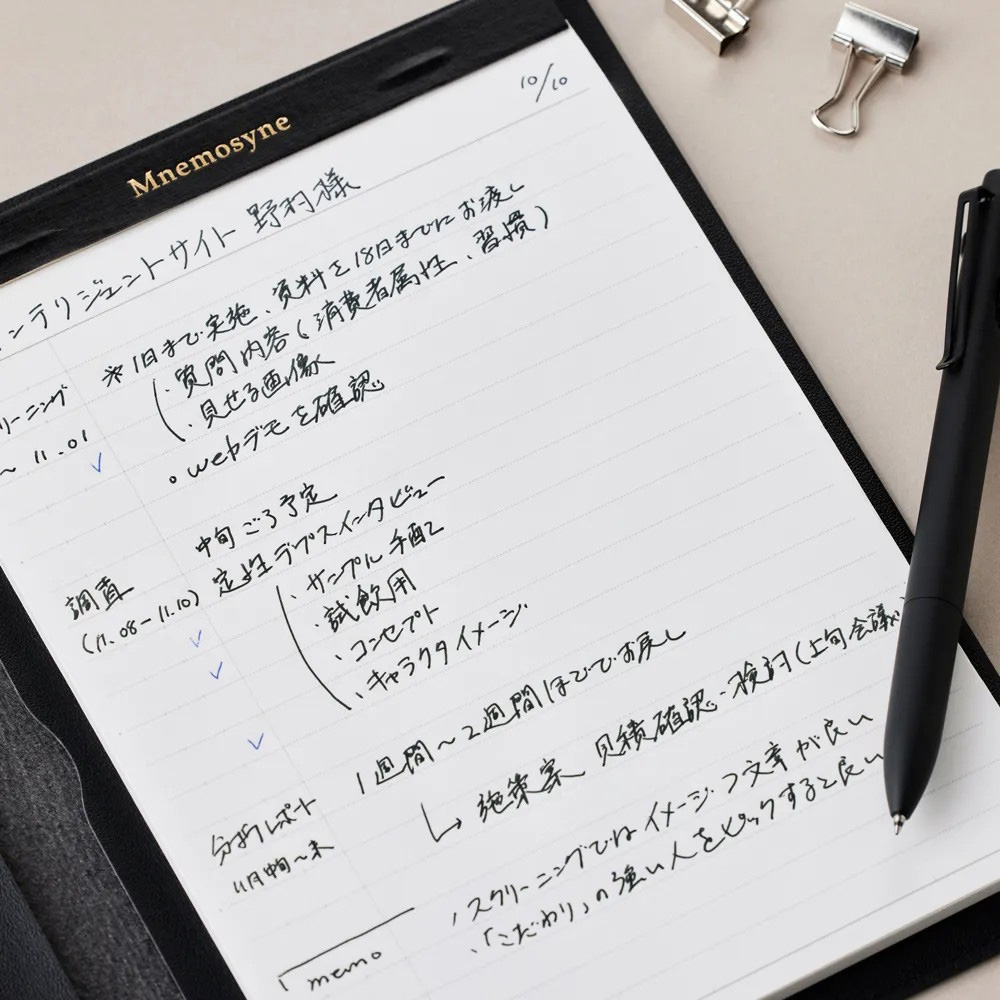 Mnemosyne
10/10
ンテリジェントサイト 野村様
※1日まで実施、資料を18日までにお渡し
・質問内容(消費者属性、習慣)
・見せる画像
リーニング
~ 11.01
。webデモを確認
中旬ごろ予定
調査
定性デプスインタビュー
(11.08-11.10)
・サンプル手配
・試飲用
・コンセプト
・キャラクタイメージ
1週間~2週間ほどでお戻し
施策案、見積確認・検討(上旬会議
分析レポート
11月中旬~末
memo
・スクリーニングではイメージ・フ文章が良い
・「こだわり」の強い人をピックすると良い